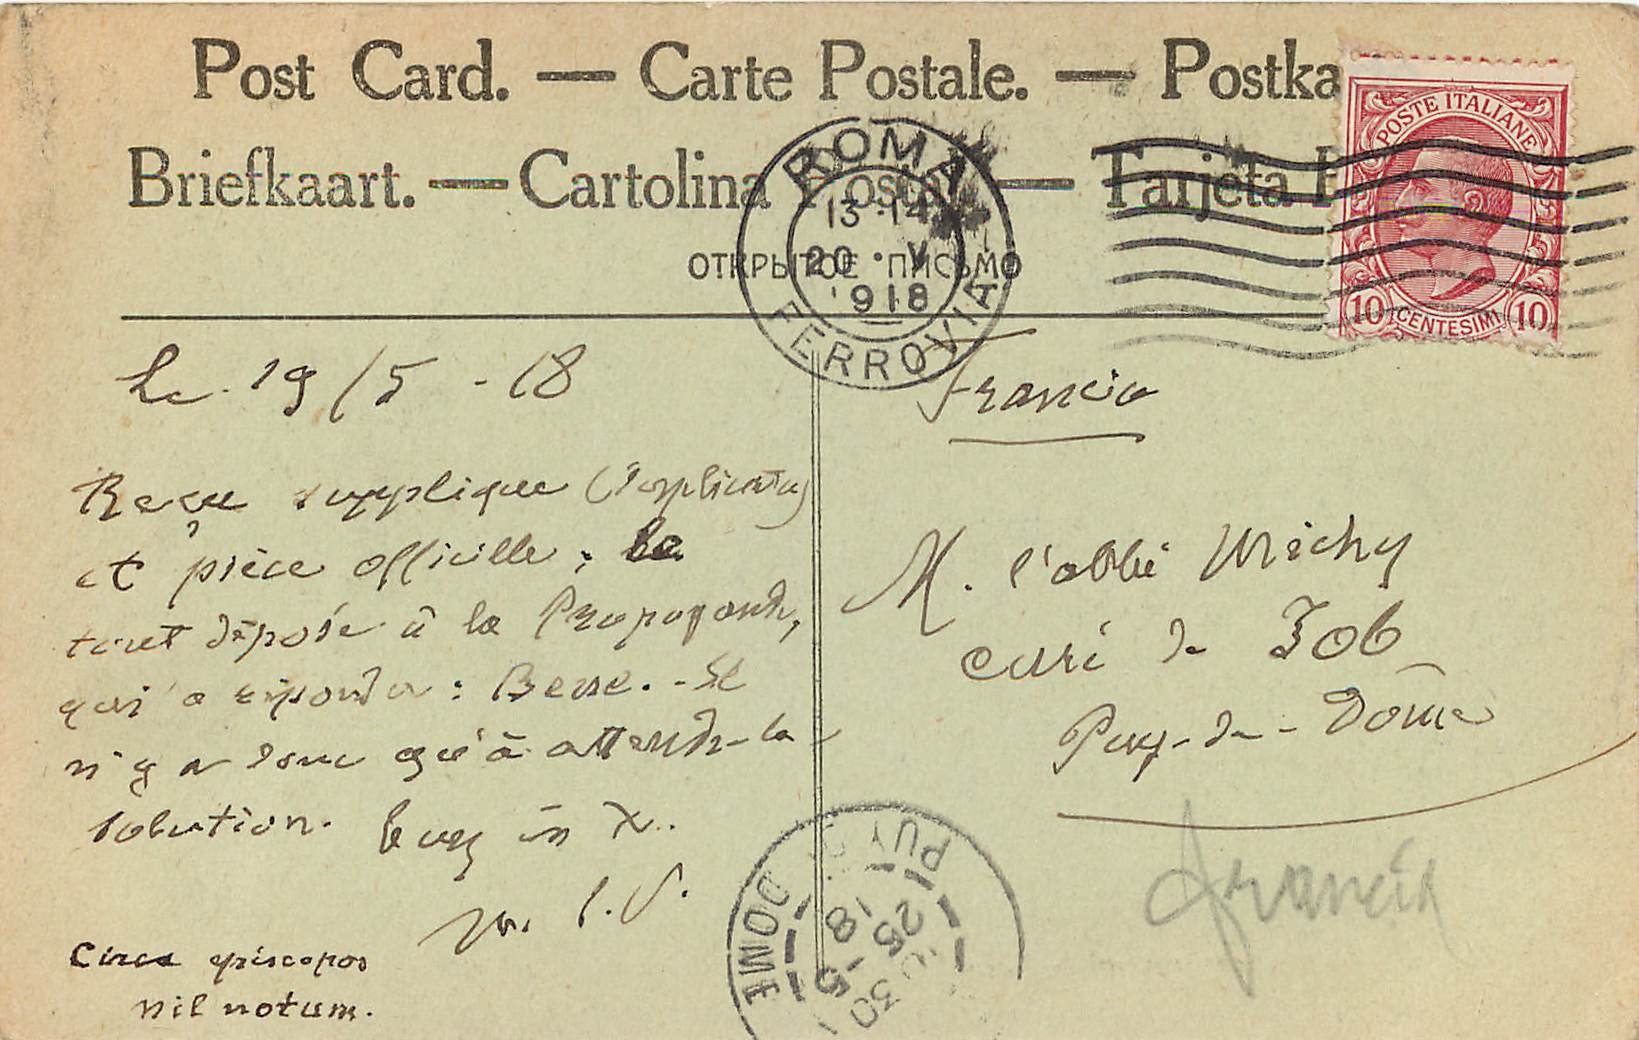 Post Card. — Carte Postale. — Postka
Briefkaart. — Cartolina Postale — Tarjeta P
ОТКРЫТОЕ ПИСЬМО
ROMA
13·14
20 · V
1918
FERROVIA
POSTE ITALIANE
10 CENTESIMI 10
Le 19/5 - 18
Francia
Reçu supplique (duplicata)
et pièce officielle ;
tout déposé à la Propagande,
qui a répondu : Bene. - Il
n'y a donc qu'à attendre la
solution. in X.
Circa episcopos
nil notum.
M. l'abbé Michy
curé de Job
Puy-de-Dôme
Francia
PUY DE DOME
25-5
18